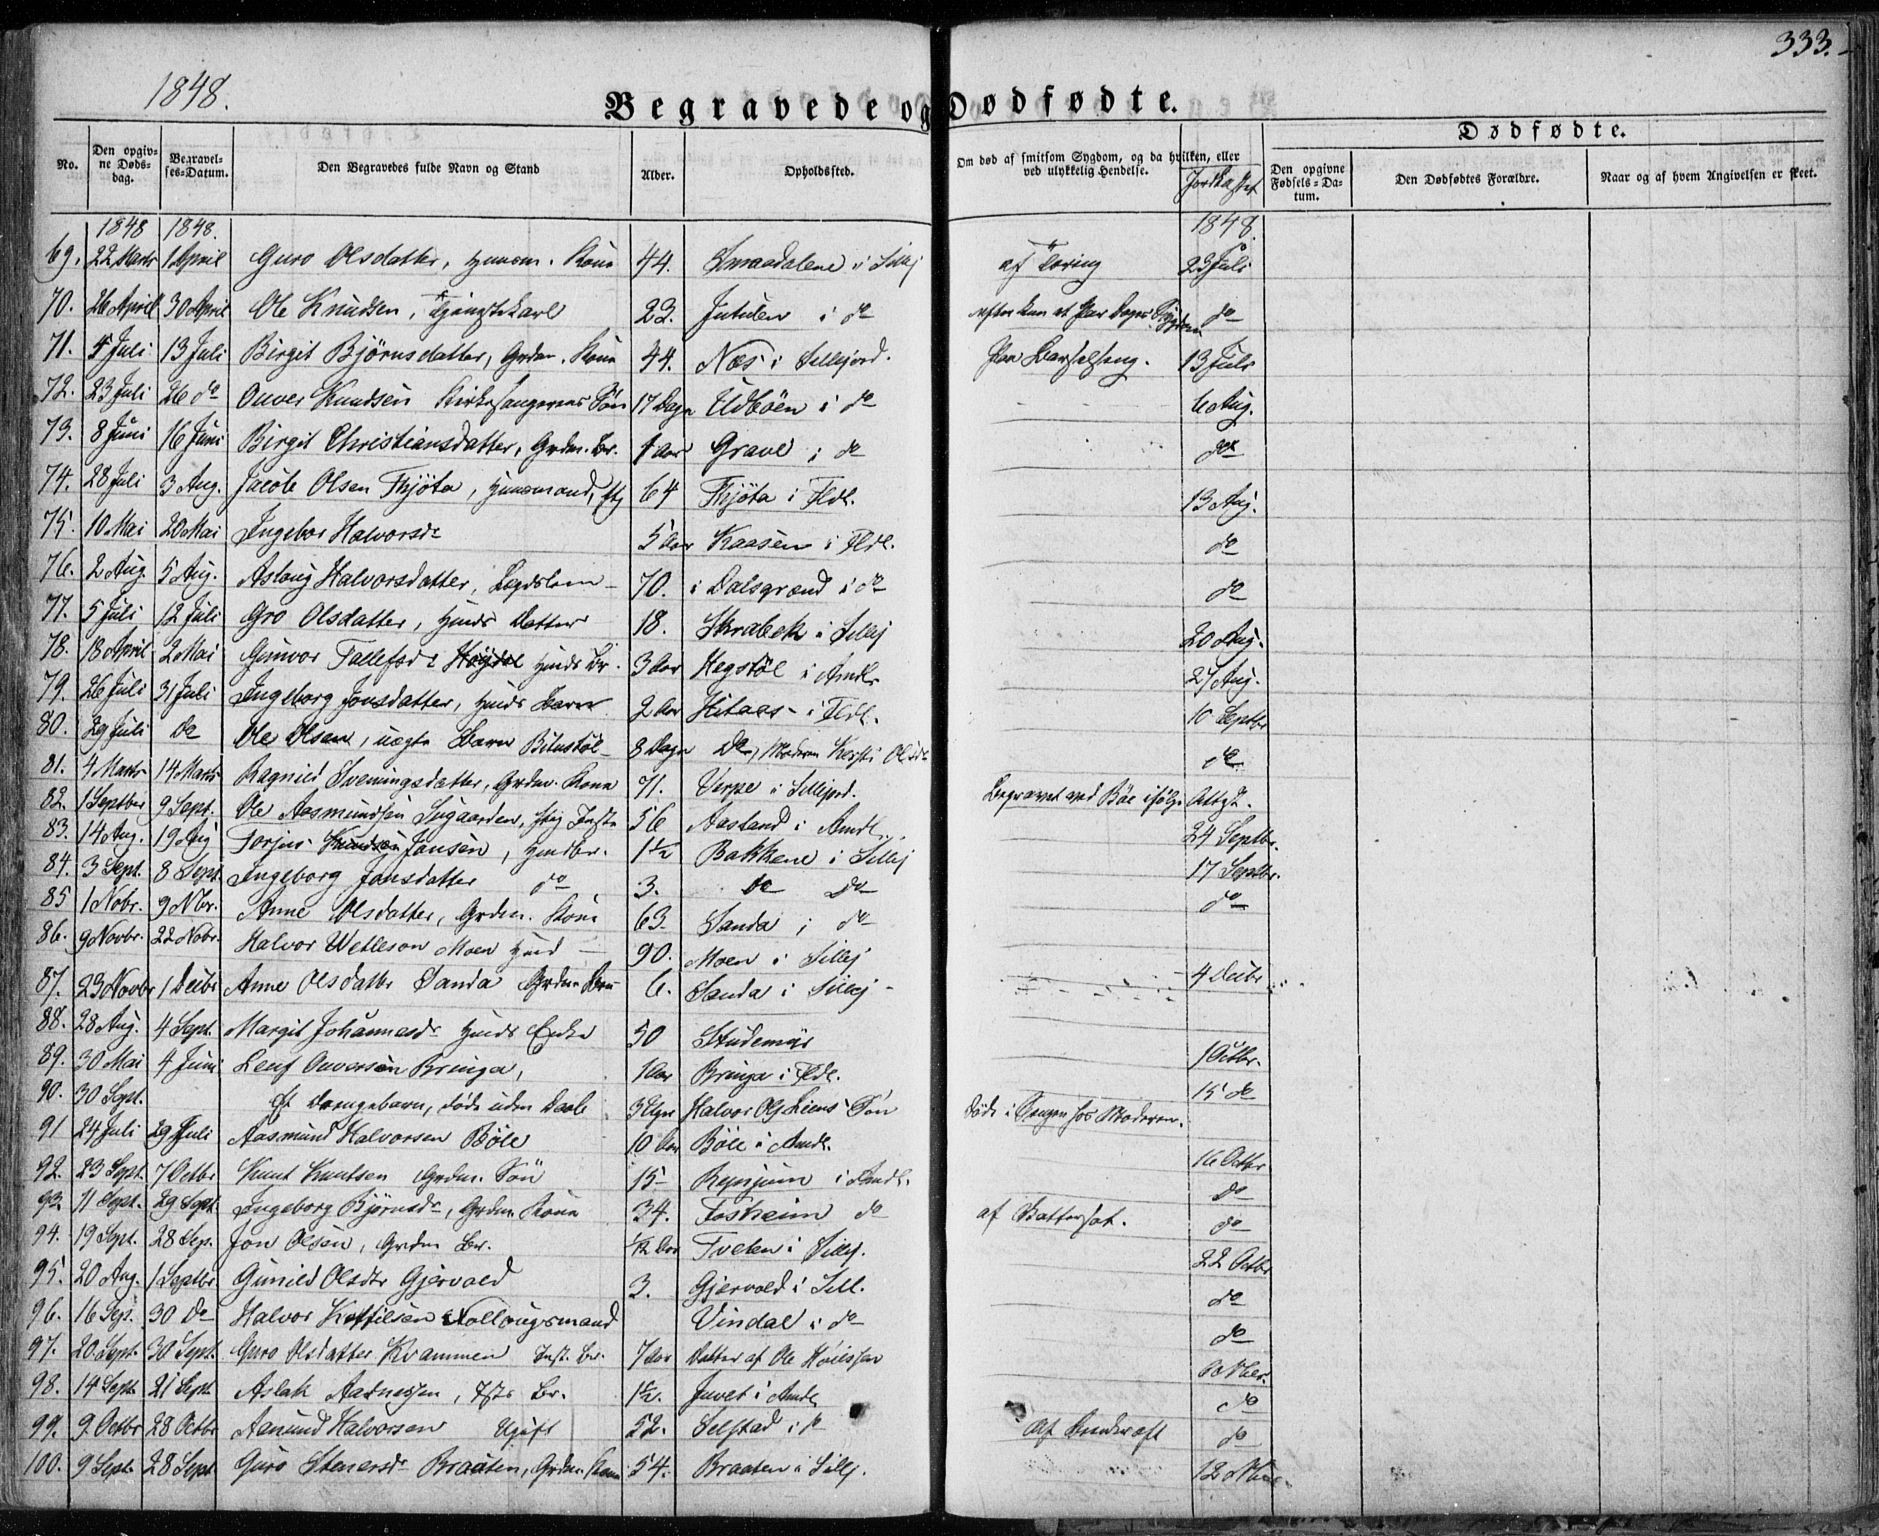 333.
1848.
Begravede og Dødfødte.
Dødfødte.
No.
Den opgivne Døds-dag.
Begravelses-Datum.
Den Begravedes fulde Navn og Stand
Alder.
Opholdssted.
Om død af smitsom Sygdom, og da hvilken, eller ved ulykkelig Hendelse.
Jordkastet
Den opgivne Fødsels-Datum.
Den Dødfødtes Forældre.
Naar og af hvem Angivelsen er skeet.
1848 1848. 1848.
69. 22 Marts 1 April Guro Olsdatter, Huusm. Kone 44. Smaadalene i Sillej af Tæring 23 Juli
70. 26 April 30 April Ole Knudsen, Tjenestekarl 22. Jutulen i do efter kun et Par Dages Sygdom do
71. 5 Juli 13 Juli Birgit Bjørnsdatter, Grdm. Kone 44. Næs i Sillejord. Paa Barselseng. 13 Juli
72. 23 Juli 26 do Onver Knudsen Kirkesangerens Søn 17 Dage Udbøen i do 6 Aug.
73. 8 Juni 16 Juni Birgit Christiansdatter, Grdm. Br. 1 Aar Grave i do do
74. 28 Juli 3 Aug. Jacob Olsen Fjøta, Huusmand, 64 Fjøta i Fldl. 13 Aug.
75. 10 Mai 20 Mai Ingebor Halvorsdr 5 Aar Kaasen i Fldl. do
76. 2 Aug. 5 Aug. Aslaug Halvorsdatter, Lægdslem 70. i Dalsgrænd i do do
77. 5 Juli 12 Juli Gro Olsdatter, Hunds Datter 18. Skrabek i Sillej 20 Aug.
78. 18 April 2 Mai Gunvor Tallefsdr Hunds Br. 3 Aar Hegstøl i Amdl. 27 Aug.
79. 26 Juli 31 Juli Ingeborg Jonsdatter, Hunds Barn 2 Aar Kitaas i Fldl. 10 Septbr
80. 29 Juli Do Ole Olsen, uægte Barn 8 Dage Do, Moderen Kersti Olsdr do
81. 4 Marts 14 Marts Ragnild Sveningsdatter, Grdm. Kone 71. Verpe i Sillejord. Begravet ved Bøe ifølge Attest.
82. 1 Septber 9 Sept. Ole Aasmundsen 56 Aasland i Amdl. 24 Septbr.
83. 14 Aug. 19 Aug Torjus Jonsen, Hmdbr. 1½ Bakkene i Sillej 17 Septbr.
84. 3 Sept. 8 Sept. Ingeborg Jonsdatter do 3. Do Do do
85 1 Nobr. 9 Nbr. Anne Olsdatter, Grdm. Kone 63. Sanda i do
86. 9 Novbr. 22 Nobr. Halvor Wetleson Moen Hmd 90. Moen i Sillej
87. 23 Novbr 1 Decbr Anne Olsdatter Sanda Grdm. 6. Sanda i Sillej 4 Decbr
88. 28 Aug. 4 Sept. Margit Johannesdr Hunds Enke 50
89. 30 Mai 4 Juni Leuf Onversen Bringa, 1 Aar Bringa i Fldl. 1 Octbr.
90. 30 Sept. Et Drengebarn, døde uden Daab 3 Halvor Søn Døde i Sengen hos Moderen. 15 do
91 24 Juli 29 Juli Aasmund Halvorsen Bøle 10 Aar Bøle i Amdl.
92. 23 Sept. 7 Octbr Knut Knutsen Grdm. Søn 15 i Amdl. 16 Octbr
93. 11 Sept. 29 Sept. Ingeborg Bjørnsdr, Grdm. Kone 34. Fosheim do af do
94. 19 Sept. 28 Sep. Jon Olsen, Grdm Br. ½ Aar Tveten i Sillej. do
95. 20 Aug. 1 Septbr Gunild Olsdtr Gjervold 3. Gjervold i Sill. 22 Octbr
96. 16 Sep. 30 Do Halvor Kittilsen Follougsmand Vindal i do do
97. 20 Sept. 30 Sept. Guro Olsdatter Krammen Inst. Br. 7 Aar Datter af Ole do
98. 14 Sept. 21 Sept. Aslak Aadnessen, Br. 1½. Juvet i Amdl
99. 9 Octbr 28 Octbr Aanund Halvorsen Ugift 52. Selstad i do do
100. 9 Sept. 28 Sept. Guro Stenersdr Braaten, Grdm. Kone 54. Braaten i Sillj. 12